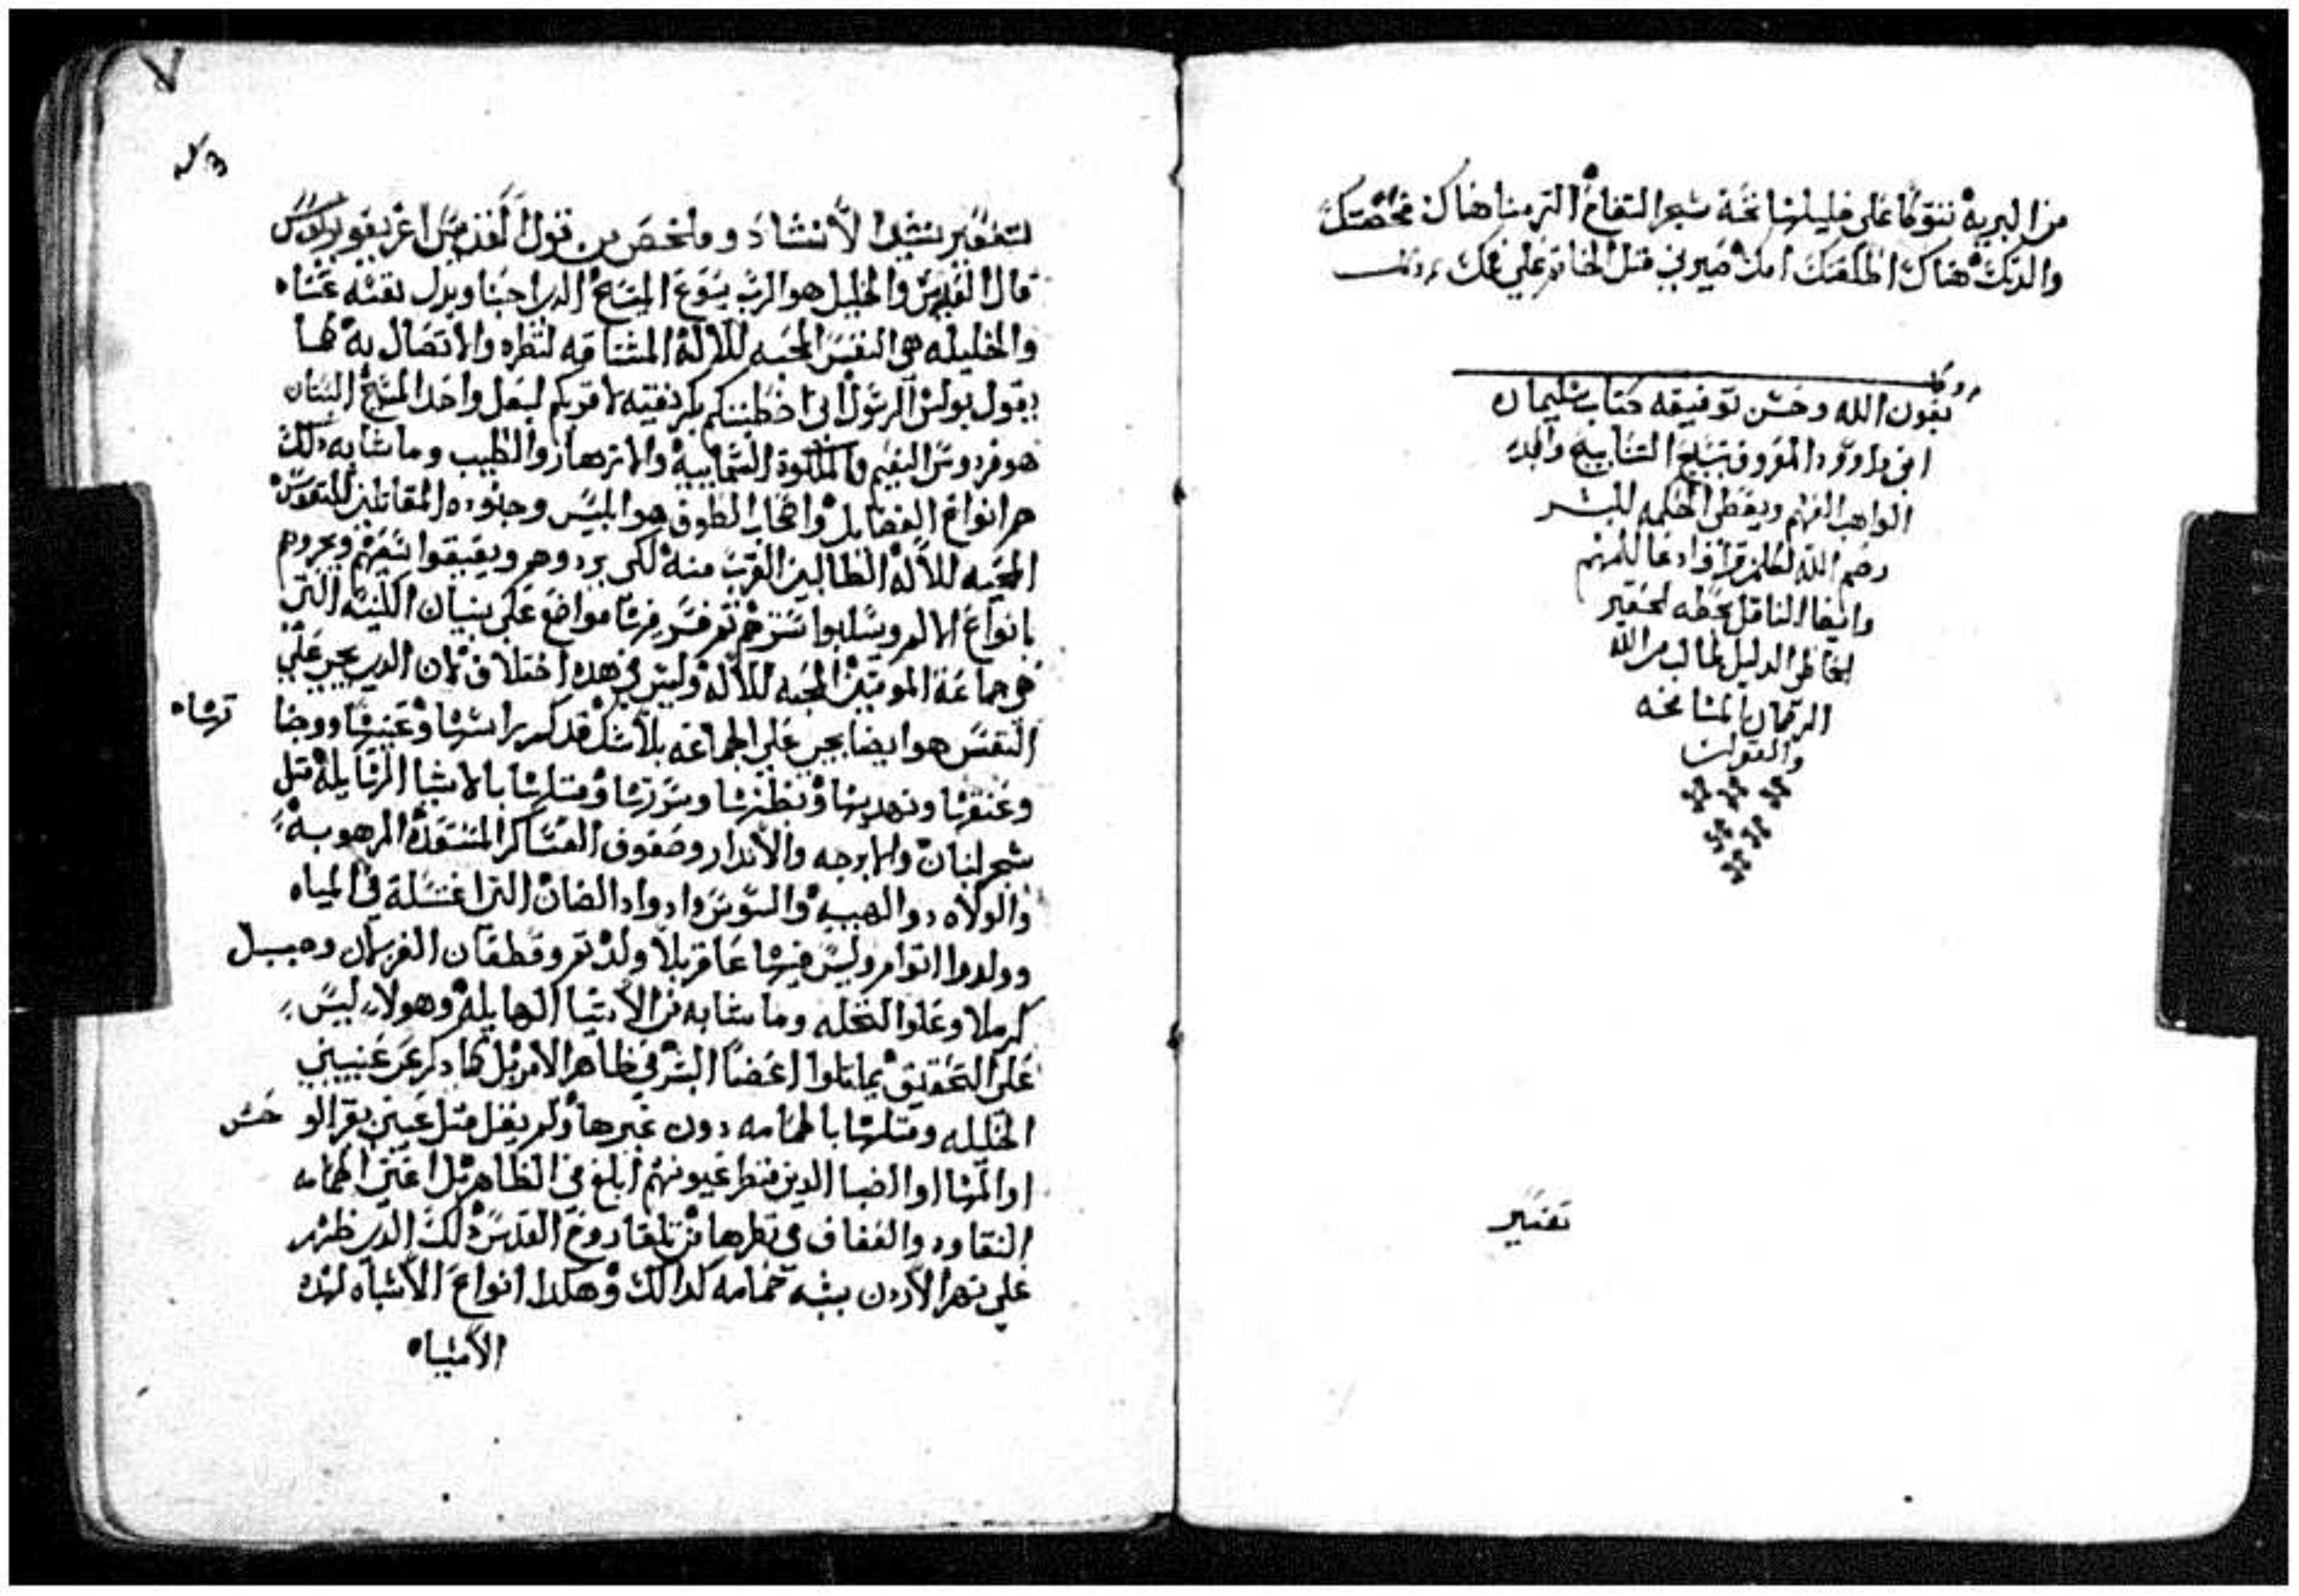 من البريه تتوكا على خليلها تحت شجر التفاح التي منا هناك مخضتك
والدتك هناك اطلقتك امك صيرني مثل الخاتم على
بعون الله وحسن توفيقه كتاب سليمان
ابن داوود المعروف بتسبيح التسابيح والمجد
الواهب الفهم ويعطي الحكمه للبشر
رحم الله لكلمن قرا وادعا للمهتم
وايضا الناقل بخطه الحقير
الخاطي الدليل طالب من الله
الرحمان المسامحه
والغفران
تفسير
٧
لتفسير نشيد الانشاد وملخص من قول القديس اغريغوريوس
قال القديس والخليل هو الرب يسوع المسيح الدي احبنا وبدل نفسه عنا
والخليله هي النفس المحبه للاله المشتاقه لنظره والاتصال به كما
يقول بولس الرسول اني خطبتكم بكر نقيه لاقربكم لبعل واحد المسيح البستان
هو فردوس النعيم والملكوة السماييه والازهار والطيب وما شابه دلك
هم انواع الفضايل واصحاب الطوف هو ابليس وجنوده المقاتلين للنفوس
المحبه للاله الطالبين القرب منه لكي يردوهم ويعيقوا سعيهم ويجروهم
بانواع الالم ويسلبوا سترهم تم فسر فيها مواضع على بنيان الكنيسه التي
هي جماعة المومنين المحبه للاله وليس في هده اختلاف لان الدي يجري على
النفس هو ايضا يجري على الجماعه بلا شك قد كم راسها وعينيها ووجنا
تها
وعنقها ونهديها ونظرها وسرتها ومتلها بالاشيا الهايله مثل
شجر لبنان والابرجه والاندار وصفوف العساكر المستعده المرهوبه
والولاه دوا الهيبه والسوسن وادواد الضان التي اغتسلة في المياه
وولدوا اتوام وليس فيها عاقر بلا ولد تم وقطعان الفرسان وجبل
كرملا وعلوا النخله وما شابه من الاشيا الهايله وهولاء ليس
على التحقيق يماتلوا اعضا البشر في ظاهر الامر بل كما دكر عن عينيني
الخليله ومتلها بالحمامه دون غيرها ولم يقل مثل عينين بقر الو
حش
او المها او الضبا الدين منظر عيونهم ابلغ في الظاهر بل اعني الحمامه
النقاوه والعفاف في نظرها من تلقا روح القدس دلك الدي ظهر
على نهر الاردن بشبه حمامه كدالك وهكدا انواع الاشباه لهده
الاشياه